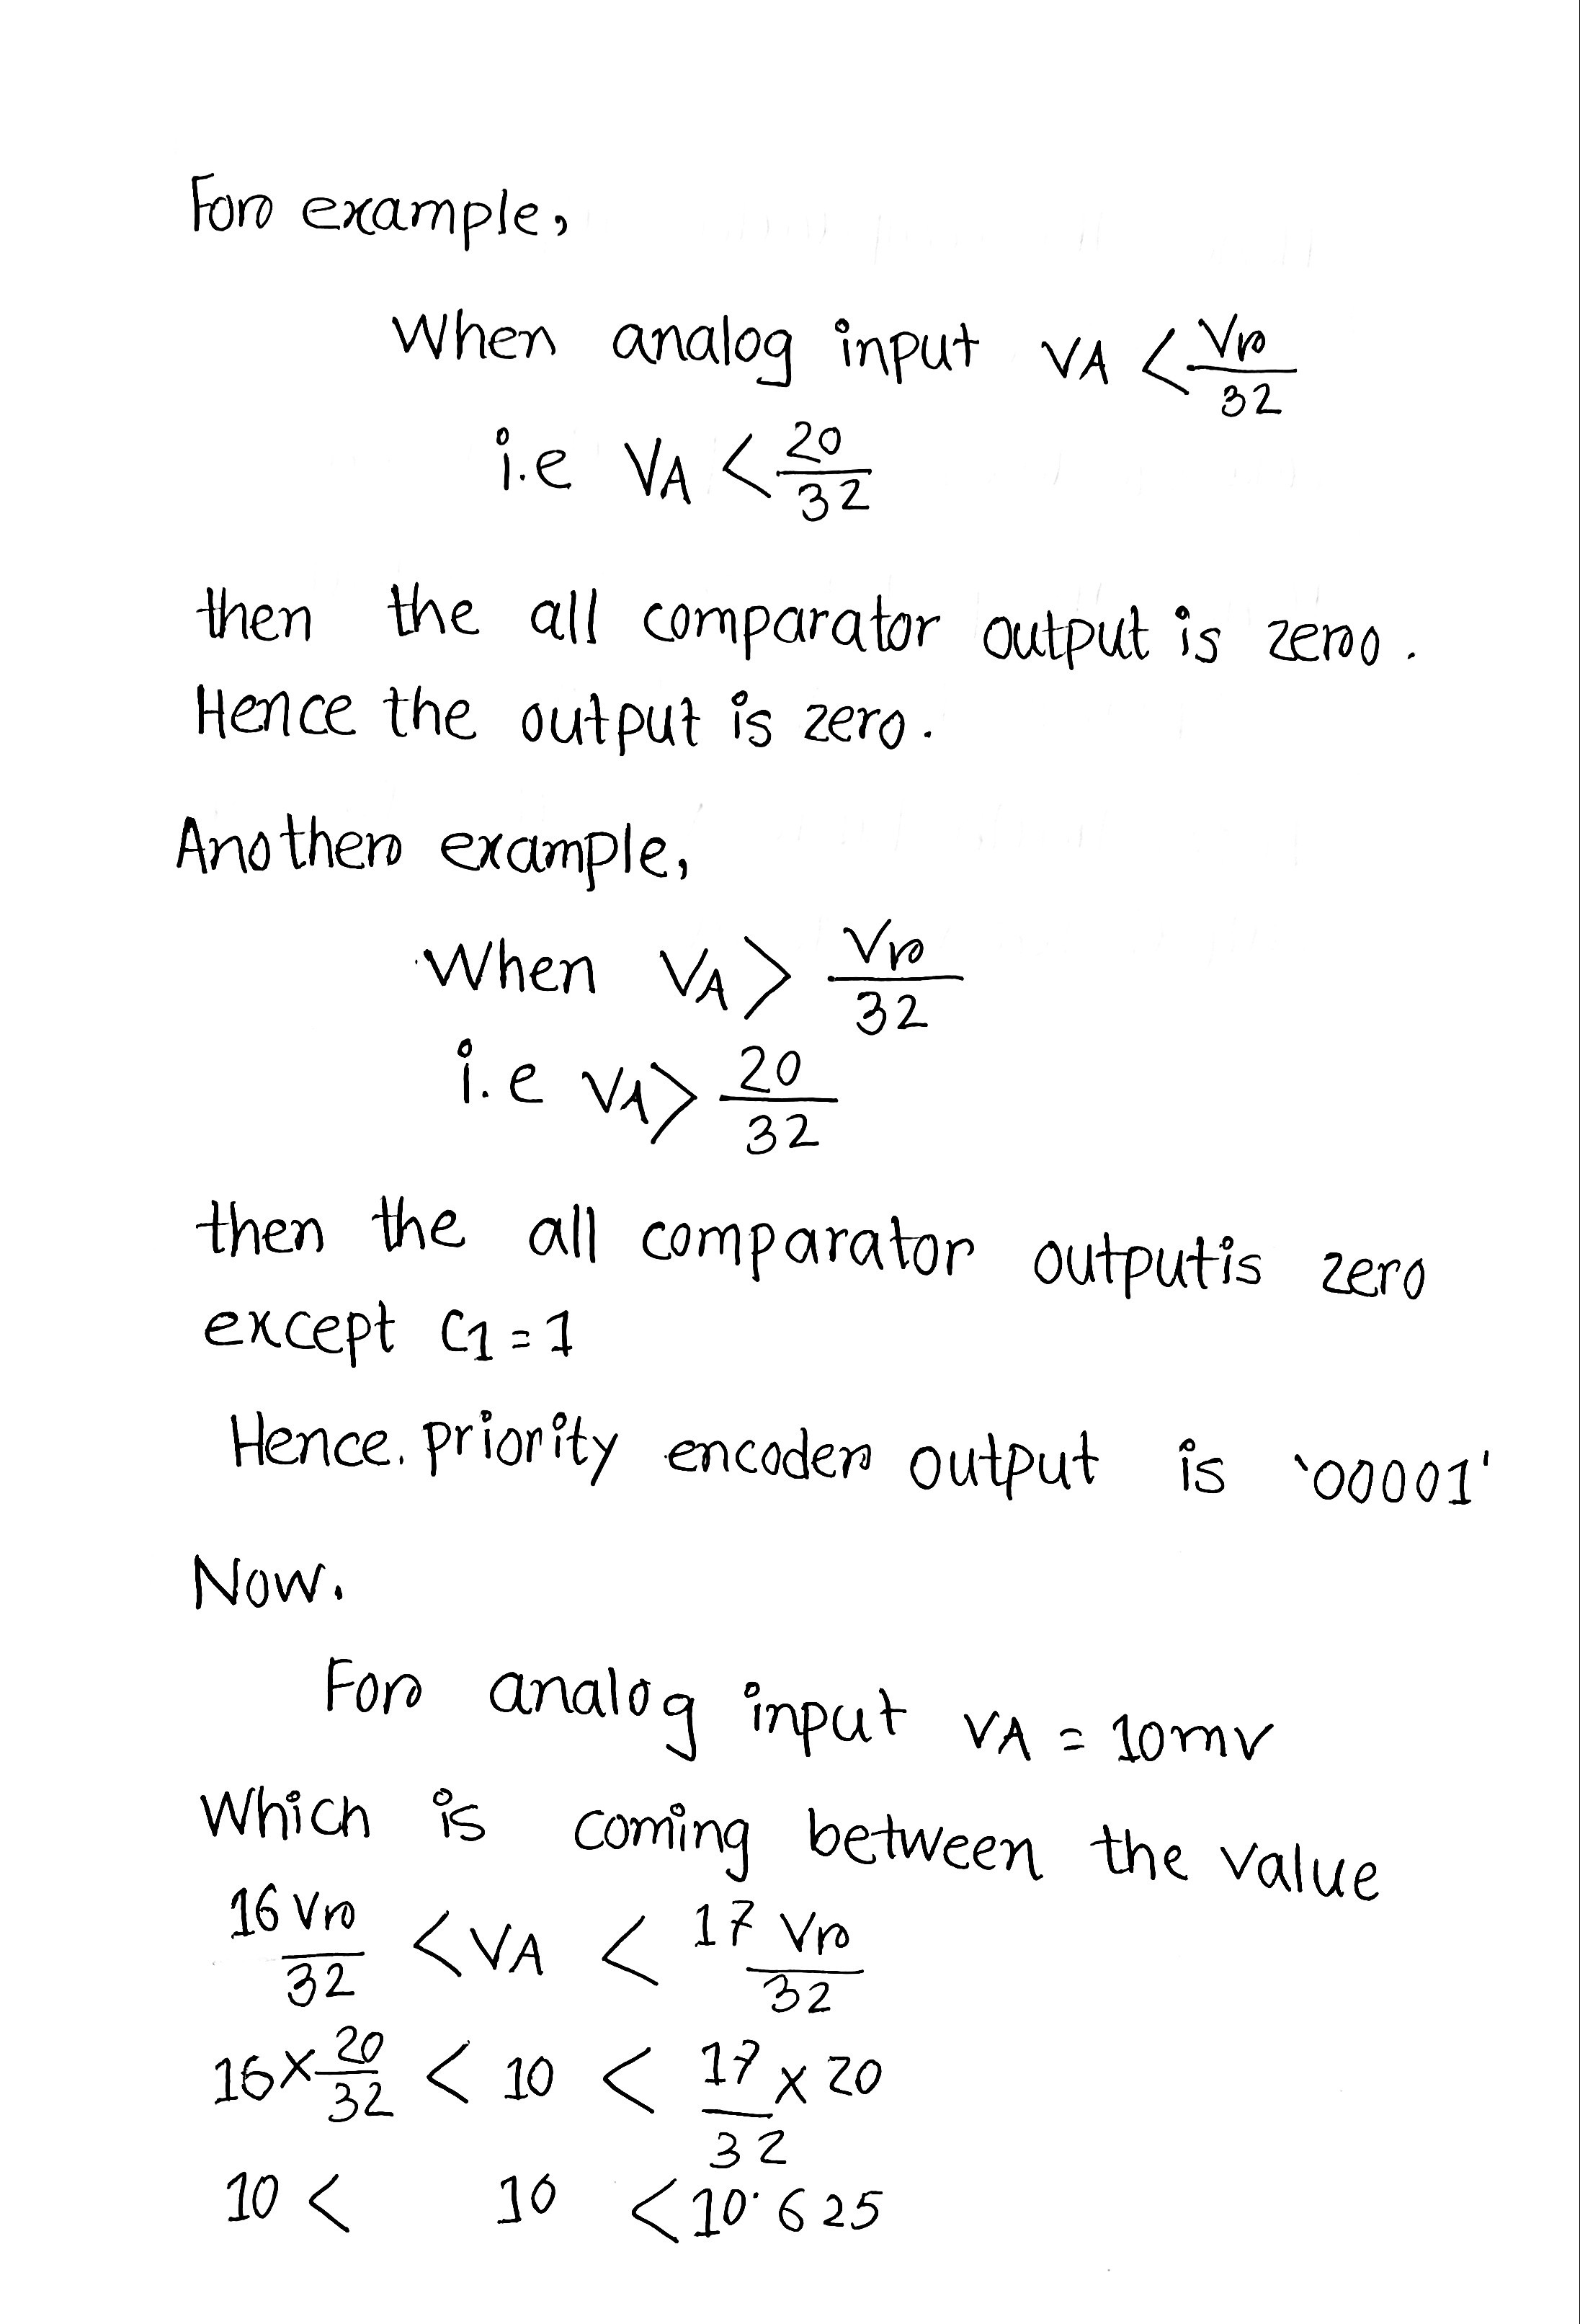 For example,
When analog input VA < Vr/32
i.e VA < 20/32
then the all comparator output is zero.
Hence the output is zero.
Another example,
When VA > Vr/32
i.e VA > 20/32
then the all comparator outputis zero
except C1 = 1
Hence. priority encoder output is '00001'
Now.
For analog input VA = 10mv
Which is coming between the value
16 Vr/32 < VA < 17 Vr/32
16 × 20/32 < 10 < 17/32 × 20
10 < 10 < 10.625